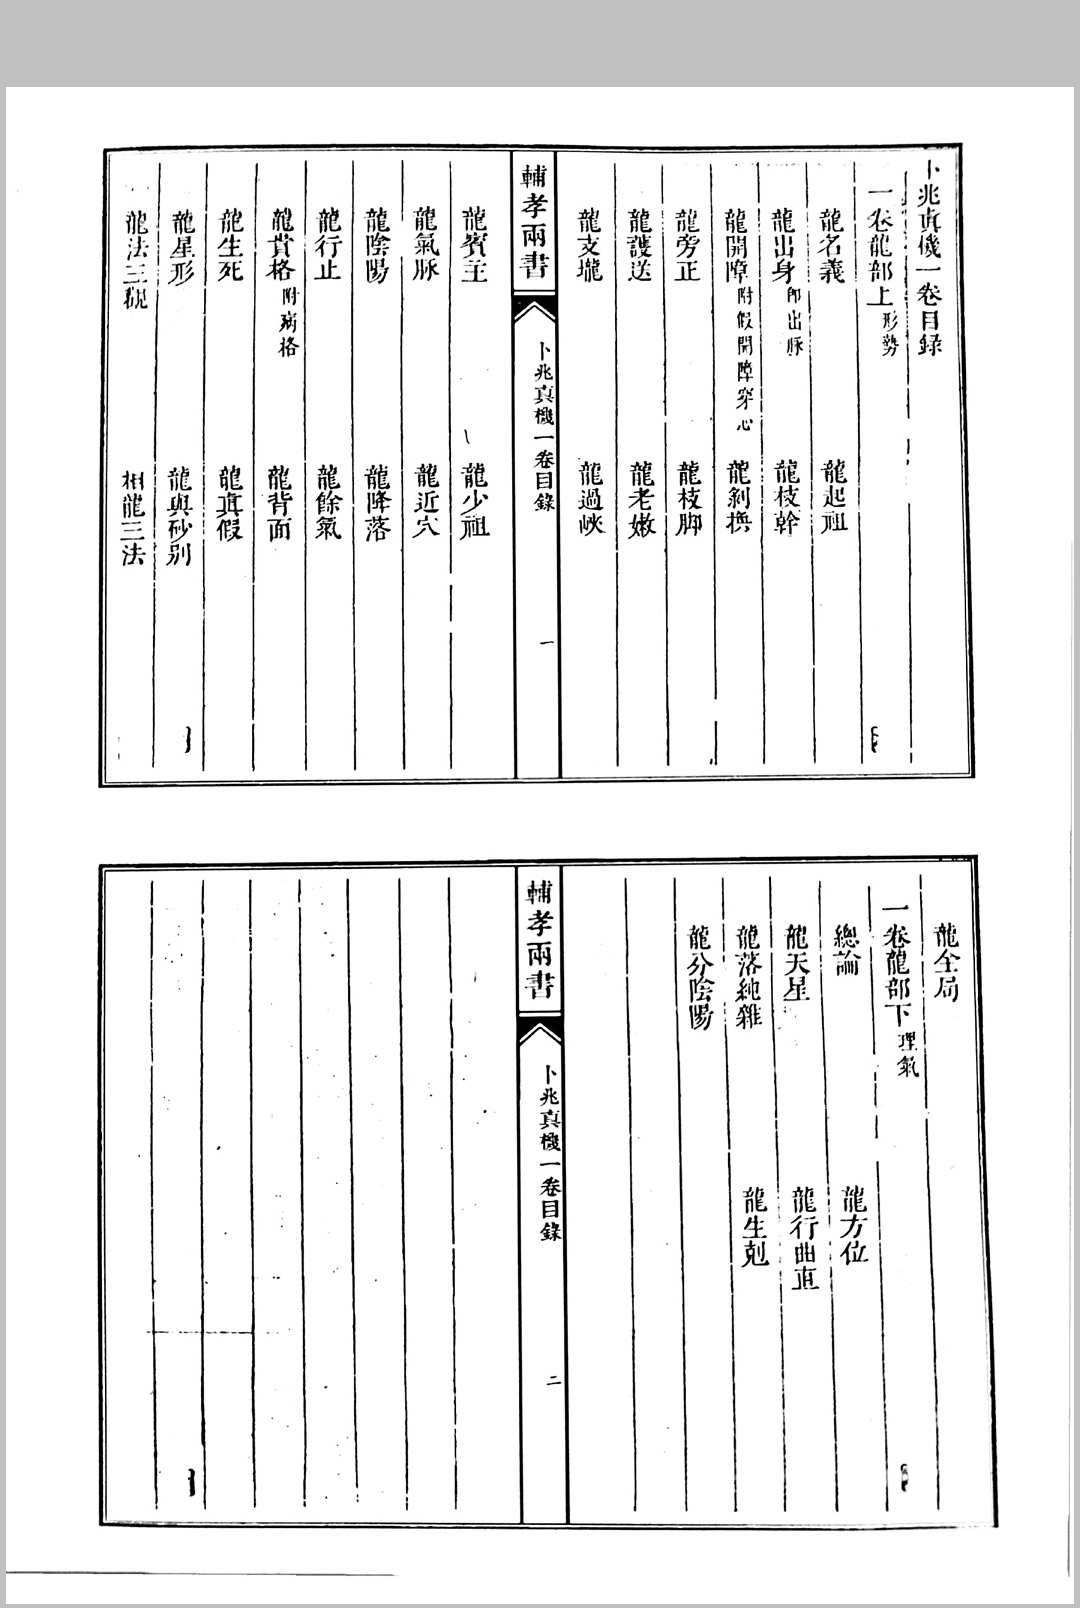 卜兆真機一卷目錄
一卷龍部上形勢
龍名義 龍起祖
龍出身即出脉 龍枝幹
龍開障附假開障穿心 龍剝換
龍旁正 龍枝脚
龍護送 龍老嫩
龍支壠 龍過峽
輔孝兩書 卜兆真機一卷目錄 一
龍賓主 龍少祖
龍氣脉 龍近穴
龍陰陽 龍降落
龍行止 龍餘氣
龍貴格附病格 龍背面
龍生死 龍真假
龍星形 龍與砂别
龍法三觀 相龍三法
龍全局
一卷龍部下理氣
總論 龍方位
龍天星 龍行曲直
龍落純雜 龍生剋
龍分陰陽
輔孝兩書 卜兆真機一卷目錄 二